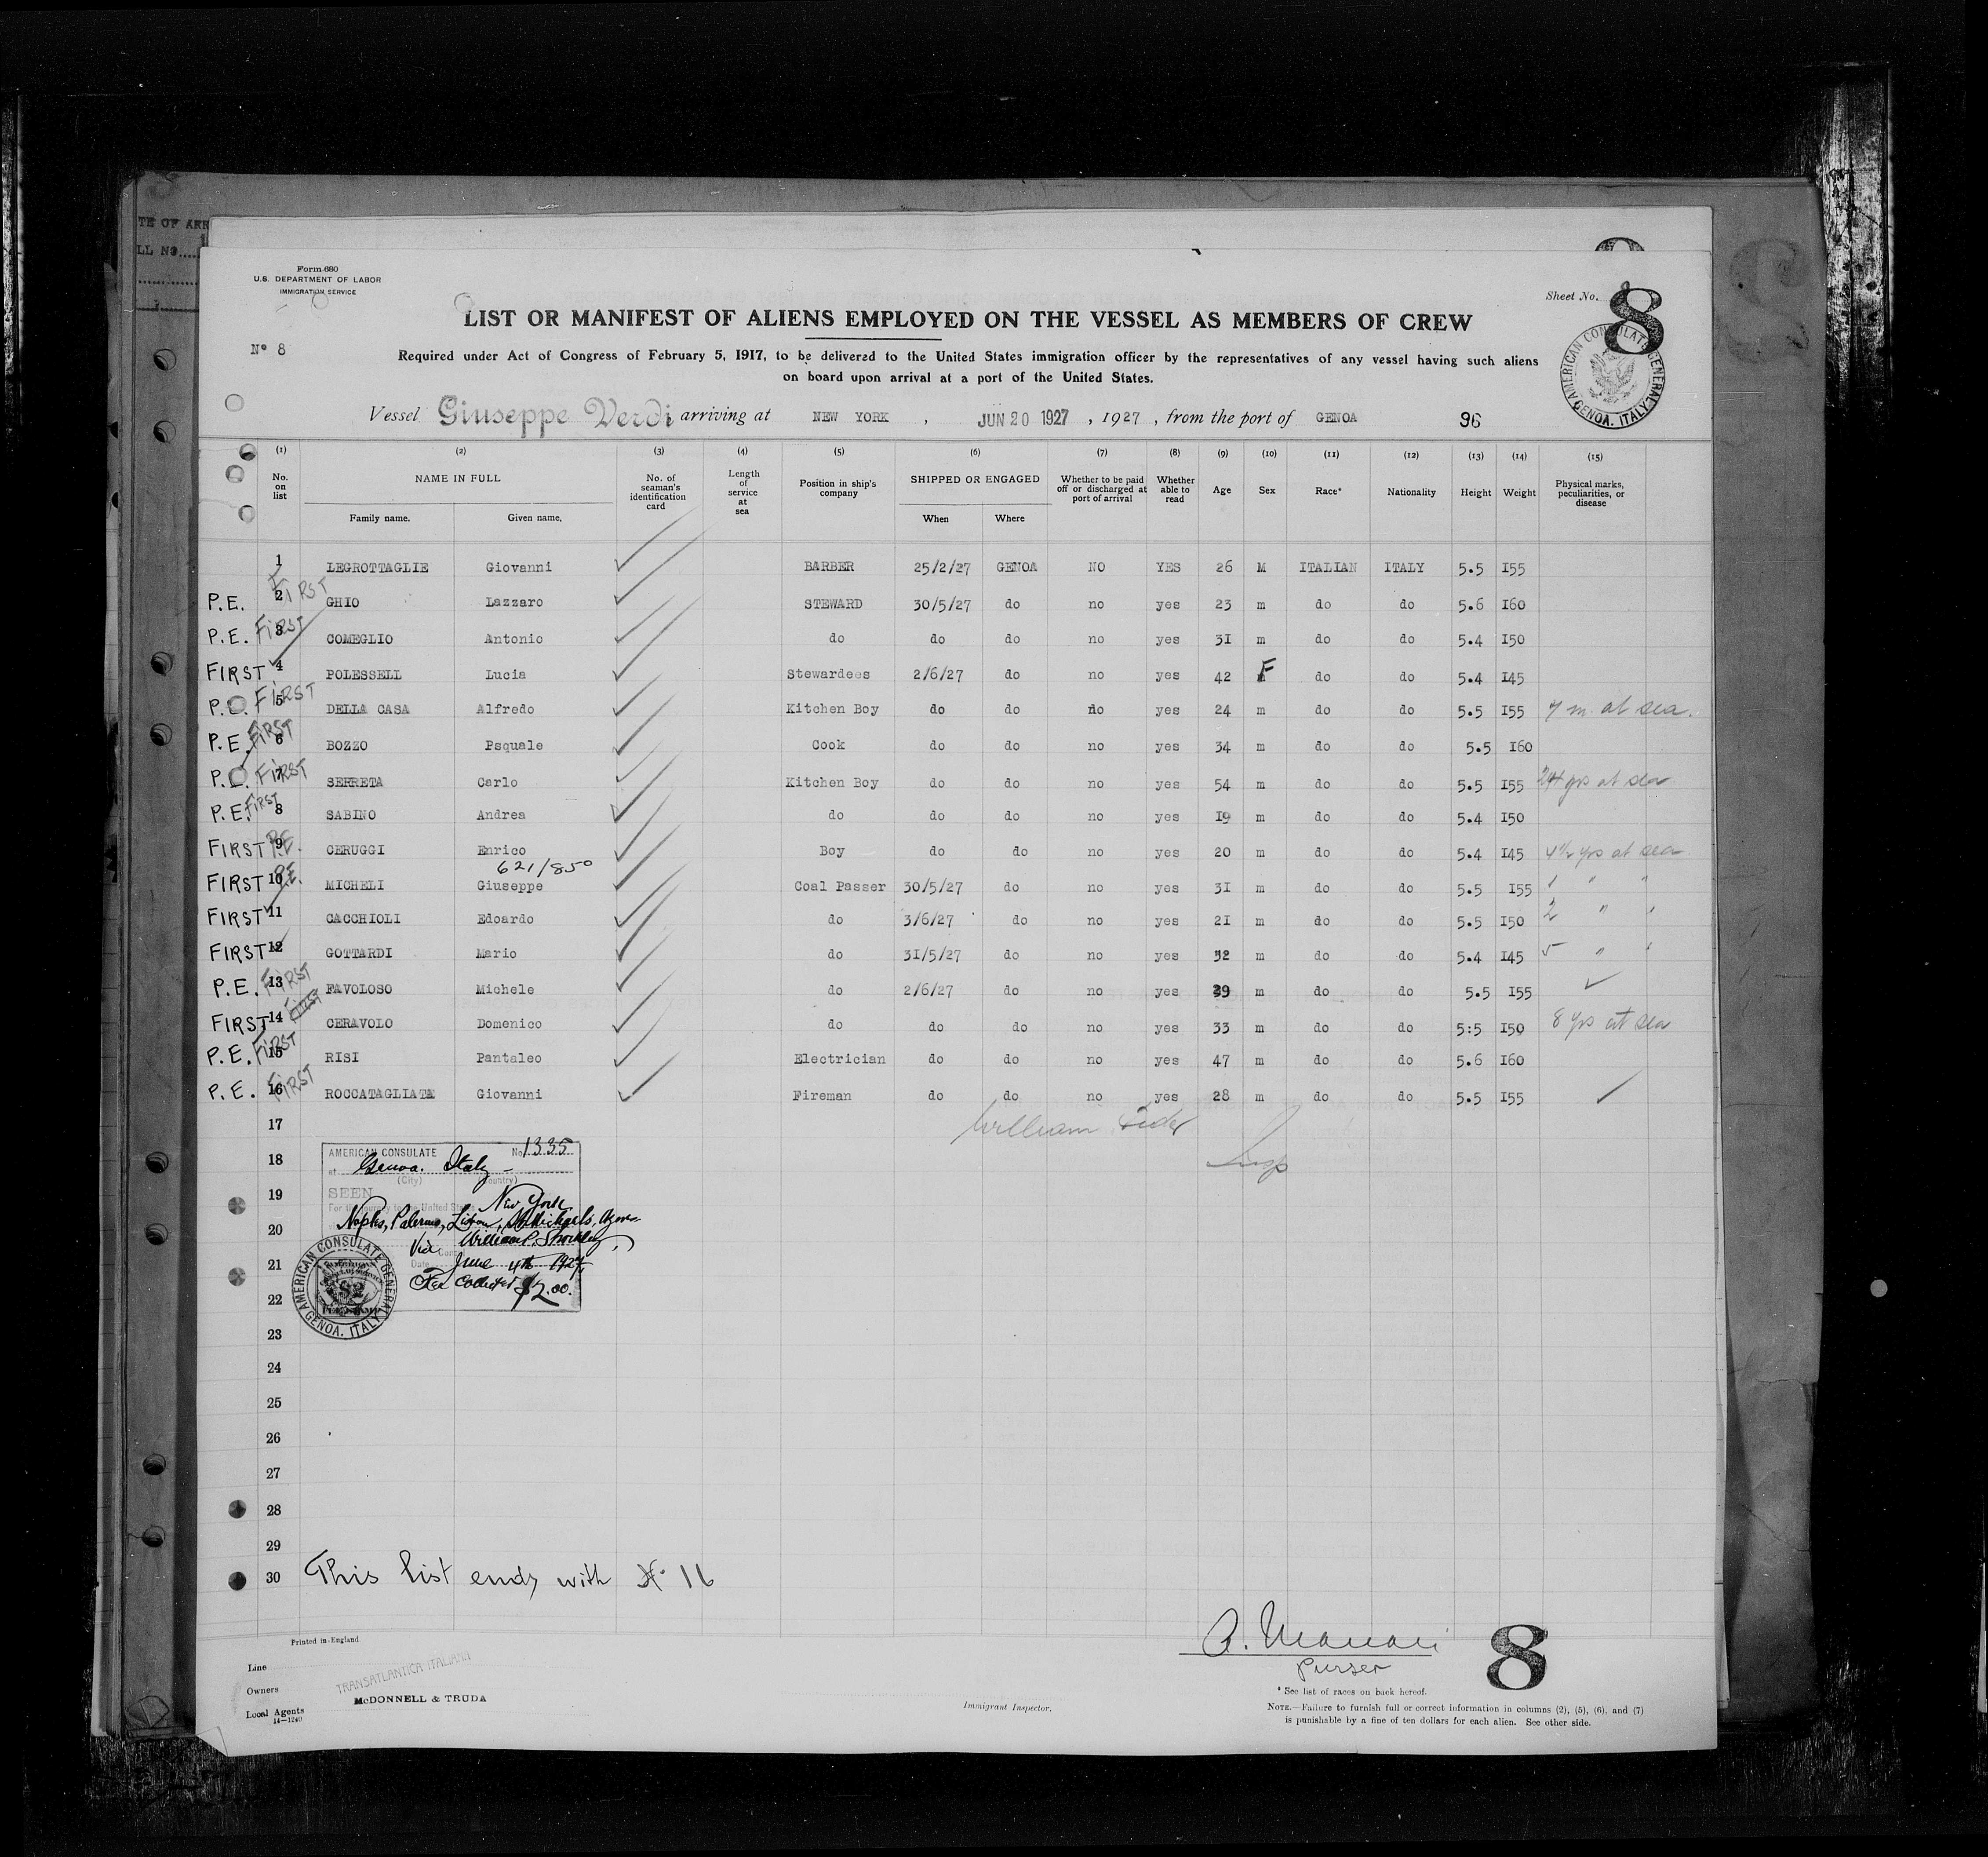 TE OF ARR
LL NO.....
Form 680
U.S. DEPARTMENT OF LABOR
IMMIGRATION SERVICE
Sheet No. 8
LIST OR MANIFEST OF ALIENS EMPLOYED ON THE VESSEL AS MEMBERS OF CREW
Nº 8
Required under Act of Congress of February 5, 1917, to be delivered to the United States immigration officer by the representatives of any vessel having such aliens
on board upon arrival at a port of the United States.
AMERICAN CONSULATE GENERAL GENOA. ITALY
Vessel Giuseppe Verdi arriving at NEW YORK , JUN 20 1927 , 1927 , from the port of GENOA 96
(1) (2) (3) (4) (5) (6) (7) (8) (9) (10) (11) (12) (13) (14) (15)
No. on list NAME IN FULL Family name. Given name. No. of seaman's identification card Length of service at sea Position in ship's company SHIPPED OR ENGAGED When Where Whether to be paid off or discharged at port of arrival Whether able to read Age Sex Race* Nationality Height Weight Physical marks, peculiarities, or disease
1 LEGROTTAGLIE Giovanni BARBER 25/2/27 GENOA NO YES 26 M ITALIAN ITALY 5.5 155
P.E. FIRST 2 GHIO Lazzaro STEWARD 30/5/27 do no yes 23 m do do 5.6 160
P.E. FIRST 3 COMEGLIO Antonio do do do no yes 31 m do do 5.4 150
FIRST 4 POLESSELL Lucia Stewardees 2/6/27 do no yes 42 F do do 5.4 145
P.E. FIRST 5 DELLA CASA Alfredo Kitchen Boy do do no yes 24 m do do 5.5 155 7 m. at sea.
P.E. FIRST 6 BOZZO Psquale Cook do do no yes 34 m do do 5.5 160
P.E. FIRST 7 SERRETA Carlo Kitchen Boy do do no yes 54 m do do 5.5 155 24 yrs at sea
P.E. FIRST 8 SABINO Andrea do do do no yes 19 m do do 5.4 150
FIRST P.E. 9 CERUGGI Enrico Boy do do no yes 20 m do do 5.4 145 4½ yrs at sea
621/850
FIRST P.E. 10 MICHELI Giuseppe Coal Passer 30/5/27 do no yes 31 m do do 5.5 155 1 " "
FIRST 11 CACCHIOLI Edoardo do 3/6/27 do no yes 21 m do do 5.5 150 2 " "
FIRST 12 GOTTARDI Mario do 31/5/27 do no yes 32 m do do 5.4 145 5 " "
P.E. FIRST 13 FAVOLOSO Michele do 2/6/27 do no yes 39 m do do 5.5 155
FIRST FIRST 14 CERAVOLO Domenico do do do no yes 33 m do do 5:5 150 8 yrs at sea
P.E. FIRST 15 RISI Pantaleo Electrician do do no yes 47 m do do 5.6 160
P.E. FIRST 16 ROCCATAGLIATA Giovanni Fireman do do no yes 28 m do do 5.5 155
17 William
18 AMERICAN CONSULATE No. 1335
at Genoa. Italy
(City) (Country)
19 SEEN
For the journey to the United States
New York
20 Naples, Palermo, Lisbon, St Michaels, Azores
Via William P. Shockley
21 Date June 4th 1927
22 Fee Collected $2.00.
AMERICAN CONSULATE GENERAL GENOA. ITALY
$2
23
24
25
26
27
28
29
30 This list ends with Nº 16
Printed in England
Line
TRANSATLANTICA ITALIANA
Owners
McDONNELL & TRUDA
Local Agents
14—1240
Immigrant Inspector.
Purser
8
* See list of races on back hereof.
NOTE.—Failure to furnish full or correct information in columns (2), (5), (6), and (7)
is punishable by a fine of ten dollars for each alien. See other side.